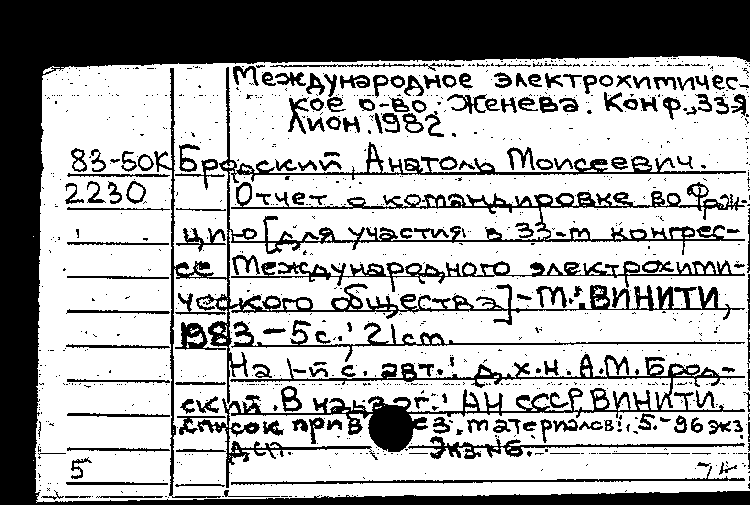 Международное электрохимичес-
кое о-во. Женева. Конф., 33я
Лион. 1982.
83-50К Бродский, Анатоль Моисеевич.
2230 Отчет о командировке во Фран-
цию [для участия в 33-м конгрес-
се Международного электрохими-
ческого общества].- М.: ВИНИТИ,
1983.- 5 с.; 21 см.
На 1-й с. авт.: д.х.н. А.М. Брод-
ский. В надзаг.: АН СССР, ВИНИТИ.
Список прив материалов: с. 5.- 96 экз
Дсп. Экз. №6.
5